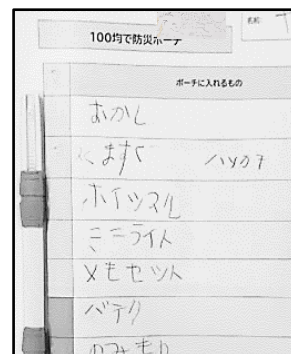 名前
100均で防災ポーチ
ポーチに入れるもの
おかし
ますく ハンカチ
ホイッスル
ミニライト
メモセット
のみもの